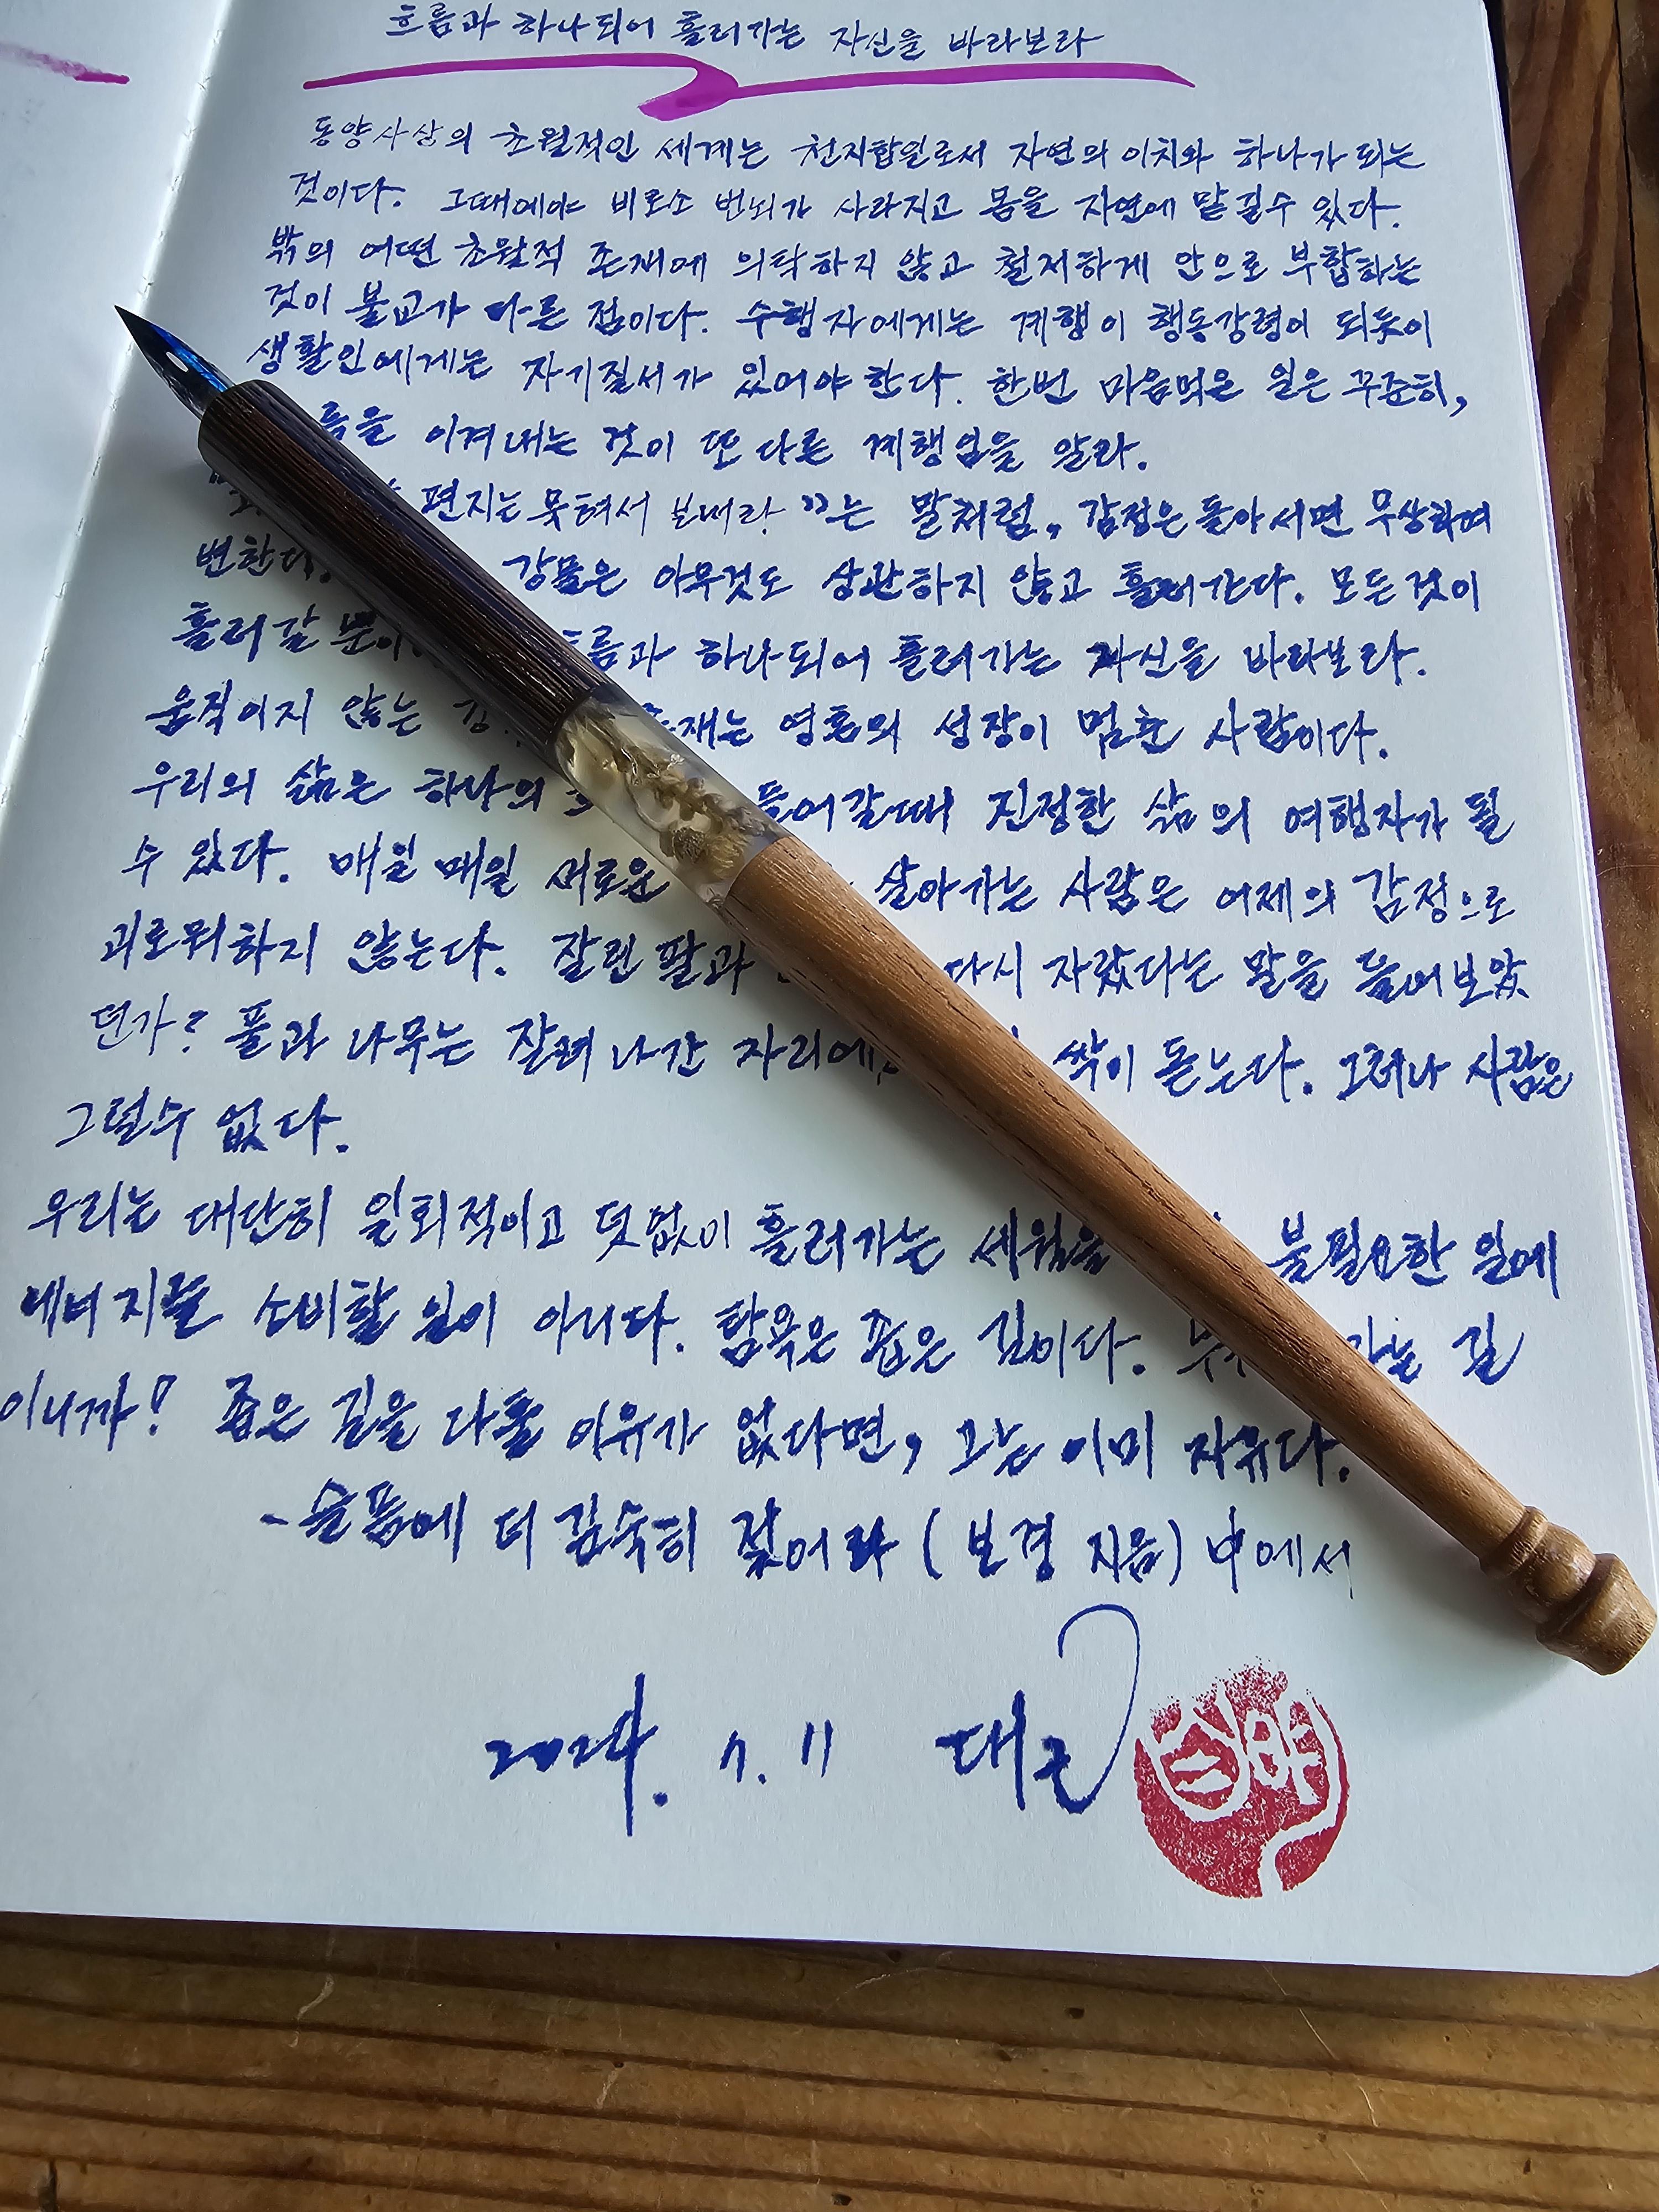 흐름과 하나되어 흘러가는 자신을 바라보라
동양사상의 초월적인 세계는 천지합일로서 자연의 이치와 하나가 되는
것이다. 그때에야 비로소 번뇌가 사라지고 몸을 자연에 맡길수 있다.
밖의 어떤 초월적 존재에 의탁하지 않고 철저하게 안으로 부합하는
것이 불교가 다른 점이다. 수행자에게는 계행이 행동강령이 되듯이
생활인에게는 자기질서가 있어야 한다. 한번 마음먹은 일은 꾸준히,
이겨내는 것이 또 다른 계행임을 알라.
편지는 묵혀서 보내라"는 말처럼, 감정은 돌아서면 무상하며
변한다. 강물은 아무것도 상관하지 않고 흘러간다. 모든것이
흘러갈 뿐이 흐름과 하나되어 흘러가는 자신을 바라보라.
움직이지 않는 존재는 영혼의 성장이 멈춘 사람이다.
우리의 삶은 하나의 들어갈때 진정한 삶의 여행자가 될
수 있다. 매일 매일 새로운 살아가는 사람은 어제의 감정으로
괴로워하지 않는다. 잘린 팔과 다시 자랐다는 말을 들어보았
던가? 풀과 나무는 잘려 나간 자리에 싹이 돋는다. 그러나 사람은
그럴수 없다.
우리는 대단히 일회적이고 덧없이 흘러가는 세월을 불필요한 일에
에너지를 소비할 일이 아니다. 탐욕은 좁은 길이다. 가는 길
이니까! 좁은 길을 다툴 이유가 없다면, 그는 이미 자유다.
-슬픔에 더 깊숙히 젖어라 (보경 지음) 中에서
2024. 7. 11 대근